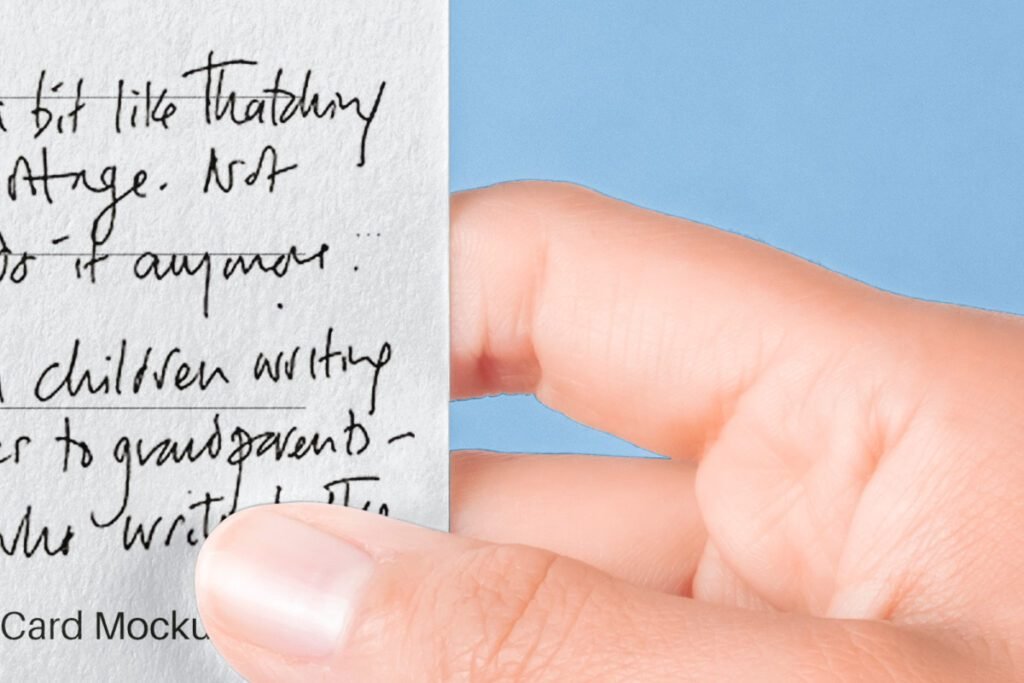 bit like Thatching
ottage. Not
do it anymore.
children writing
ers to grandparents -
who writ
Card Mocku